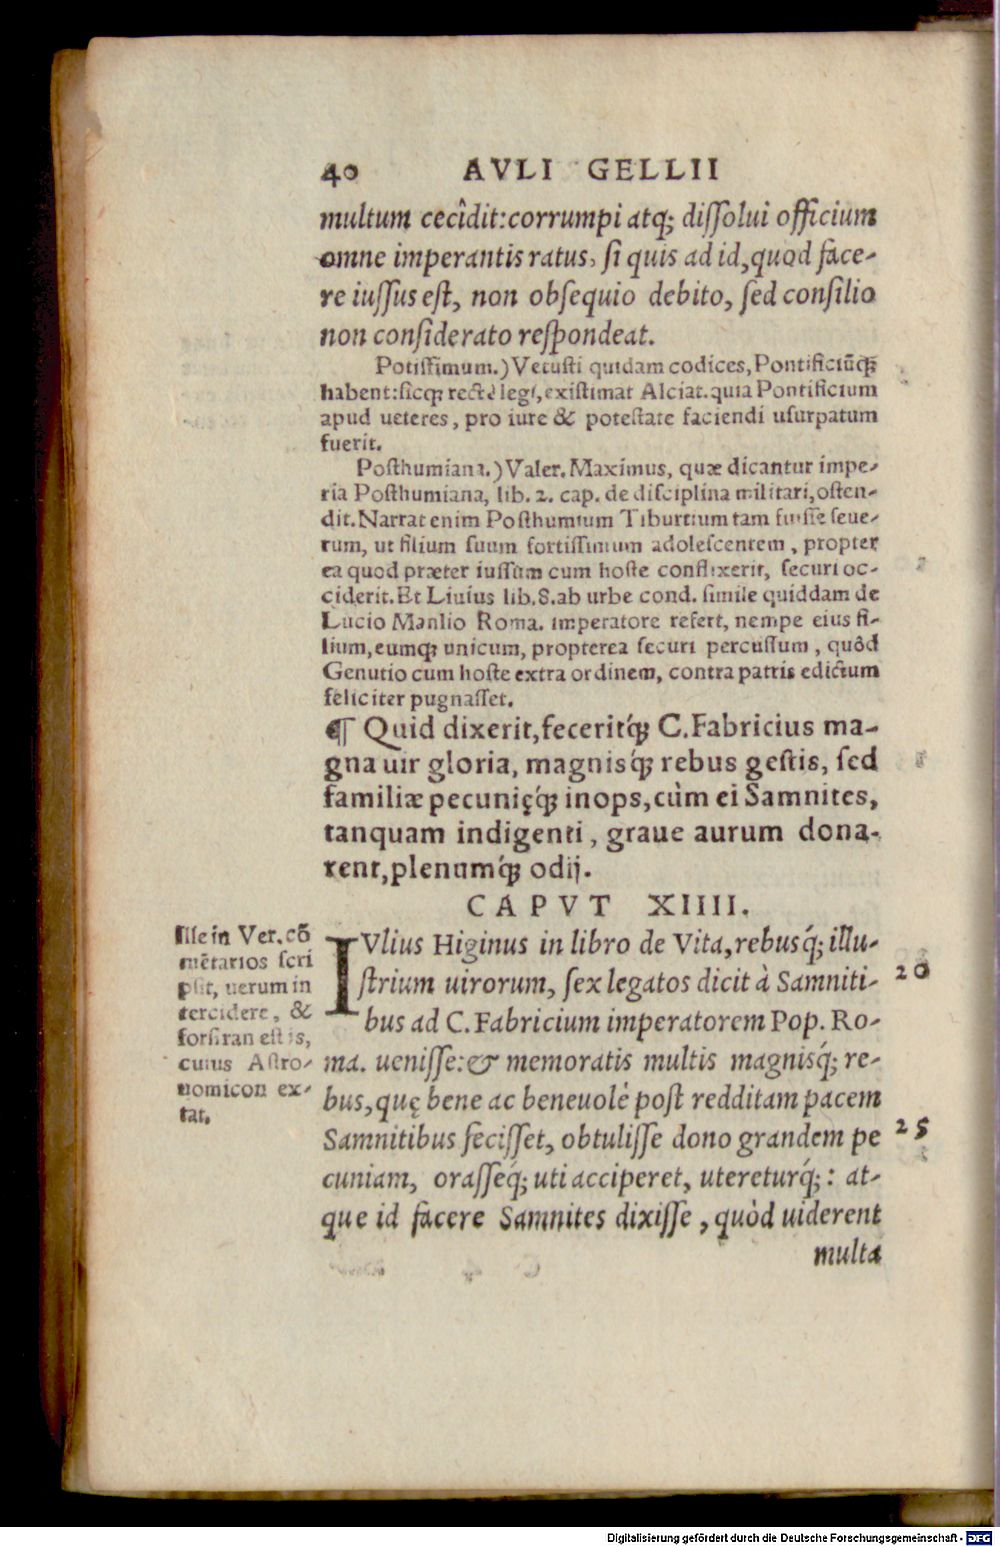 40 AVLI GELLII
multum cecîdit:corrumpi atq; dissolui officium
omne imperantis ratus, si quis ad id,quod face-
re iussus est, non obsequio debito, sed consilio
non considerato respondeat.
Potissimum.) Vetusti quidam codices, Pontificiũq;
habent:sicq; rectè legi, existimat Alciat.quia Pontificium
apud ueteres, pro iure & potestate faciendi usurpatum
fuerit.
Posthumiana.) Valer. Maximus, quæ dicantur impe-
ria Posthumiana, lib. 2. cap. de disciplina militari,osten-
dit. Narrat enim Posthumium Tiburtium tam fuisse seue-
rum, ut filium suum fortissimum adolescentem, propter
ea quod præter iussum cum hoste conflixerit, securi oc-
ciderit. Et Liuius lib. 8. ab urbe cond. simile quiddam de
Lucio Manlio Roma. imperatore refert, nempe eius fi-
lium, eumq; unicum, propterea securi percussum, quôd
Genutio cum hoste extra ordinem, contra patris edictum
feliciter pugnasset.
¶ Quid dixerit,feceritq́; C. Fabricius ma-
gna uir gloria, magnisq́; rebus gestis, sed
familiæ pecunięq́; inops,cùm ei Samnites,
tanquam indigenti, graue aurum dona-
rent,plenumq́; odij.
CAPVT XIIII.
IVlius Higinus in libro de Vita,rebusq́; illu-
strium uirorum, sex legatos dicit à Samniti-
bus ad C. Fabricium imperatorem Pop. Ro-
ma. uenisse:& memoratis multis magnisq́; re-
bus,quę bene ac beneuolè post redditam pacem
Samnitibus fecisset, obtulisse dono grandem pe
cuniam, orasseq́; uti acciperet, utereturq́;: at-
que id facere Samnites dixisse, quòd uiderent
multa
Ille in Ver. cõ
mẽtarios scri
psit, uerum in
tercidere, &
forsitan est is,
cuius Astro-
nomicon ex-
tat.
20
25
Digitalisierung gefördert durch die Deutsche Forschungsgemeinschaft - DFG